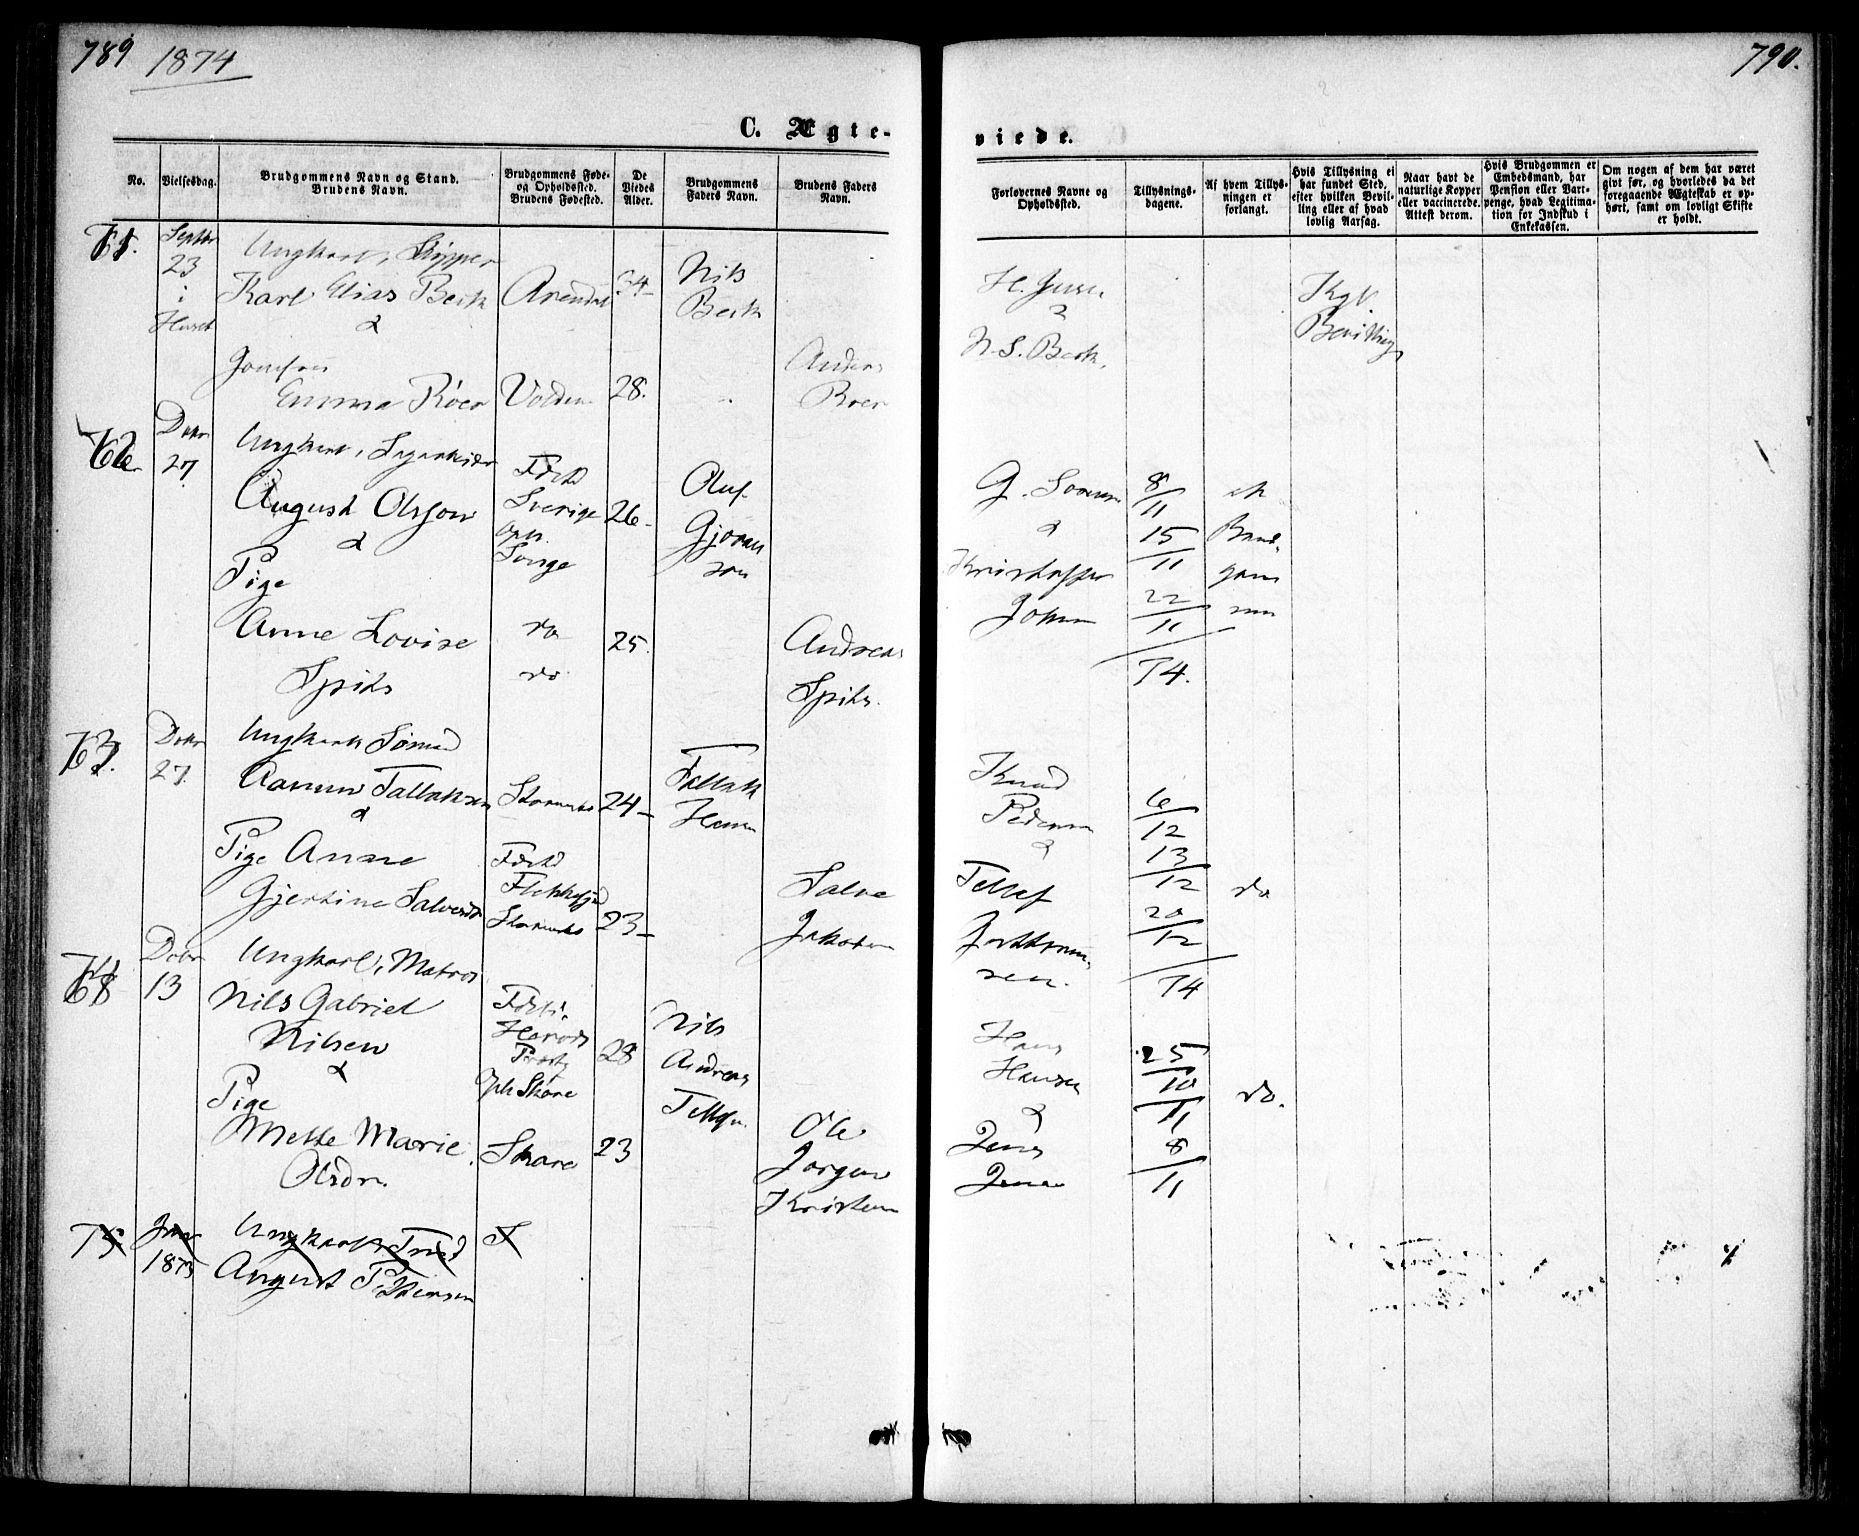 789 1874
790.
C. Ægte-
viede.
No.
Vielsesdag.
Brudgommens Navn og Stand.
Brudens Navn.
Brudgommens Føde-
og Opholdssted.
Brudens Fødested.
De
Viedes
Alder.
Brudgommens
Faders Navn.
Brudens Faders
Navn.
Forlovernes Navne og
Opholdssted.
Tillysnings-
dagene.
Af hvem Tillys-
ningen er
forlangt.
Hvis Tillysning ei
har fundet Sted,
efter hvilken Bevil-
ling eller af hvad
lovlig Aarsag.
Naar havt de
naturlige Kopper
eller vaccinerede.
Attest derom.
Hvis Brudgommen er
Embedsmand, har
Pension eller Vart-
penge, hvad Legitima-
tion for Indskud i
Enkekassen.
Om nogen af dem har været
givt før, og hvorledes da det
foregaaende Ægteskab er op-
hørt, samt om lovligt Skifte
er holdt.
Septbr
23
i
Huset
Ungkarl, Skipper
Karl Elias Berk
&
Jomfru
Emma Röer
Arendal
34
28.
Nils
Berk
Anders
Roer
&
N. S. Berk
Kgl.
Bevilling
27
Ungkarl,
August Olsson
&
Pige
Anne Lovise
Spiks
Född
Sverige
Oph.
Songe
do
do
26
25.
Oluf
Gjöran
son
Andreas
Spiks.
&
Kristoffer
8/11
15/11
22/11
74.
af
Brud-
gom
men
63.
27.
Ungkarl Sömd
Aanun Tallaksen
&
Pige Anne
Gjertine Salvesdtr
Född
24
23
Tallak
Salve
Jakobsen
Knud
Pedersen
&
Tellef
sen.
6/12
13/12
20/12
74
do
13
Ungkarl, Matros
Nils Gabriel
Nilsen
&
Pige
Mette Marie
Olsdr.
Oph Skare
Skare
28
23
Nils
Andreas
Ole
Jörgen
Kristen
Hans
Hansen
&
Jens
25/10
1/11
8/11
do.
75
Janr
1875
Ungkarl
August Petersen